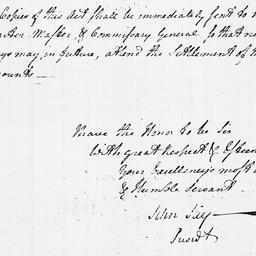 Copies of this Act shall be immediately sent to
arter Master & Commissary General so that
may, in future, attend the Settlement of
ounts
I have the Honor to be Sir
With great Respect & Esteem
Your Excellency's most
& Humble Servant
John Jay
Presidt